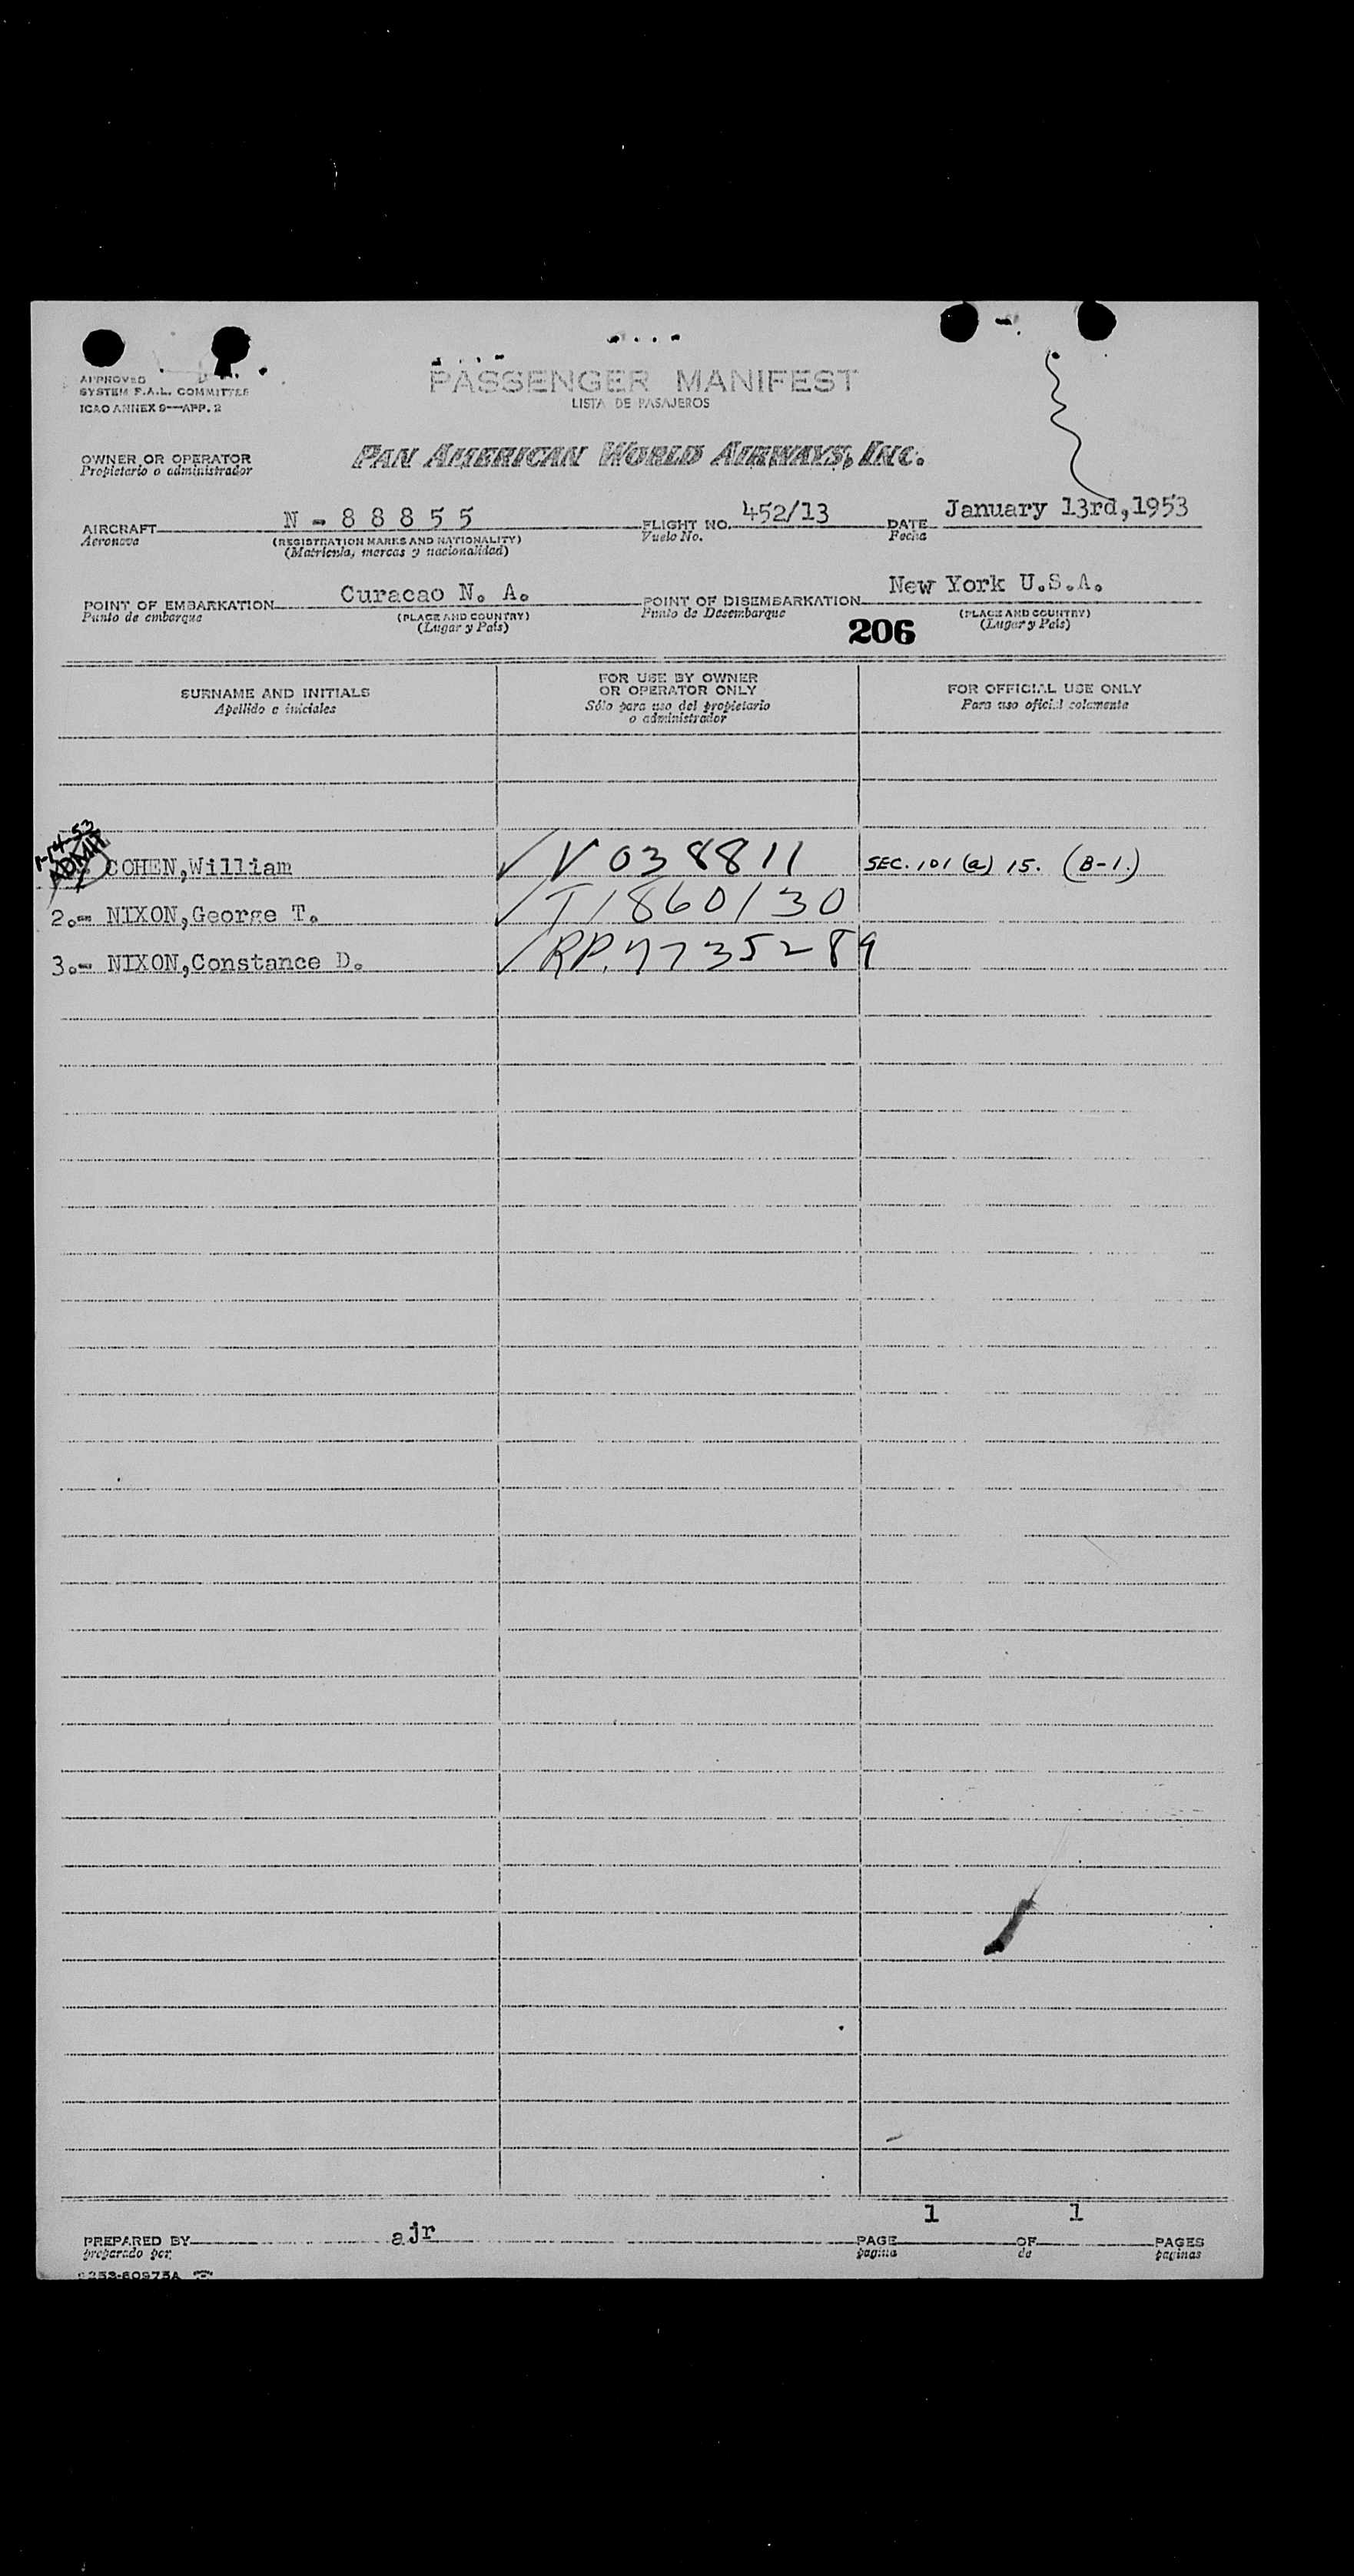 APPROVED
SYSTEM F.A.L. COMMITTEE
ICAO ANNEX 9—APP. 2
PASSENGER MANIFEST
LISTA DE PASAJEROS
OWNER OR OPERATOR
Propietario o administrador
PAN AMERICAN WORLD AIRWAYS, INC.
AIRCRAFT N - 8 8 8 5 5 FLIGHT NO. 452/13 DATE January 13rd,1953
Aeronave (REGISTRATION MARKS AND NATIONALITY) Vuelo No. Fecha
(Matricula, marcas y nacionalidad)
POINT OF EMBARKATION Curacao N. A. POINT OF DISEMBARKATION New York U.S.A.
Punto de embarque (PLACE AND COUNTRY) Punto de Desembarque (PLACE AND COUNTRY)
(Lugar y País) 206 (Lugar y País)
SURNAME AND INITIALS FOR USE BY OWNER OR OPERATOR ONLY FOR OFFICIAL USE ONLY
Apellido e iniciales Sólo para uso del propietario o administrador Para uso oficial solamente
1-14-53
ADMIT
COHEN,William ✓ V 038811 SEC. 101 (a) 15. (B-1.)
2.- NIXON,George T. ✓ T1860130
3.- NIXON,Constance D. ✓ RP.7735289
1 1
PREPARED BY ajr PAGE OF PAGES
preparado por pagina de paginas